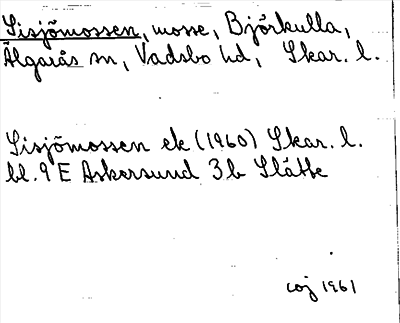 Sisjömossen, mosse, Björkulla,
Älgarås sn, Vadsbo hd, Skar. l.
Sisjömossen ek (1960) Skar. l.
bl. 9 E Askersund 3b Slätte
coj 1961